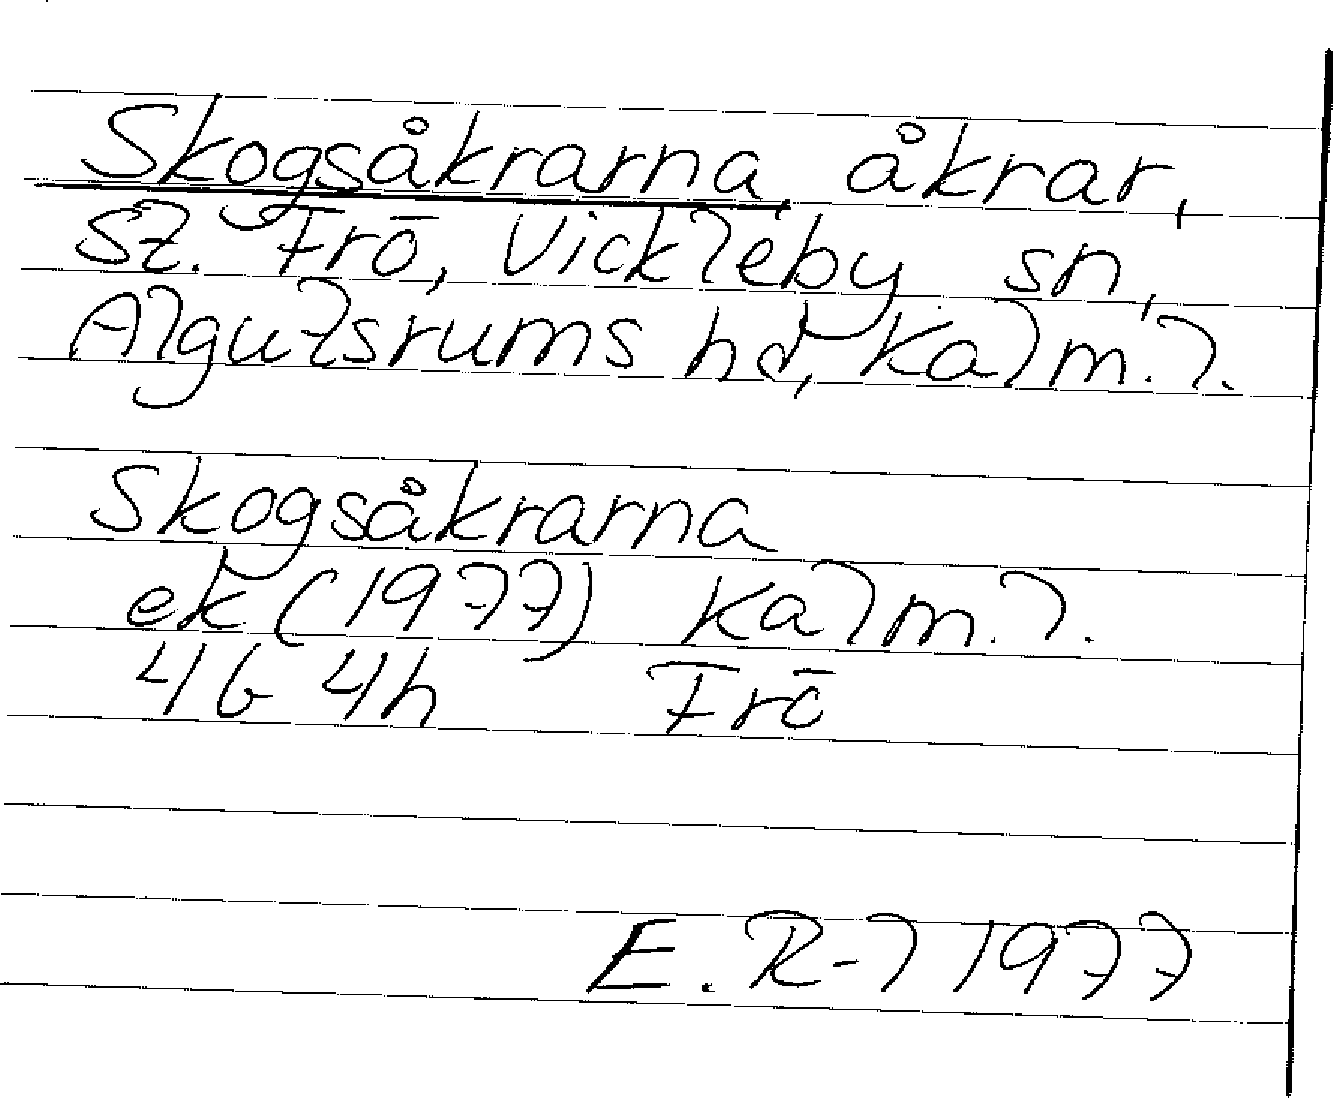 Skogsåkrarna åkrar,
sz. Frö, Vickleby sn,
Algutsrums hd, Kalm. l.
Skogsåkrarna
ek (1977) Kalm. l.
4G 4h Frö
E. R-l 1977